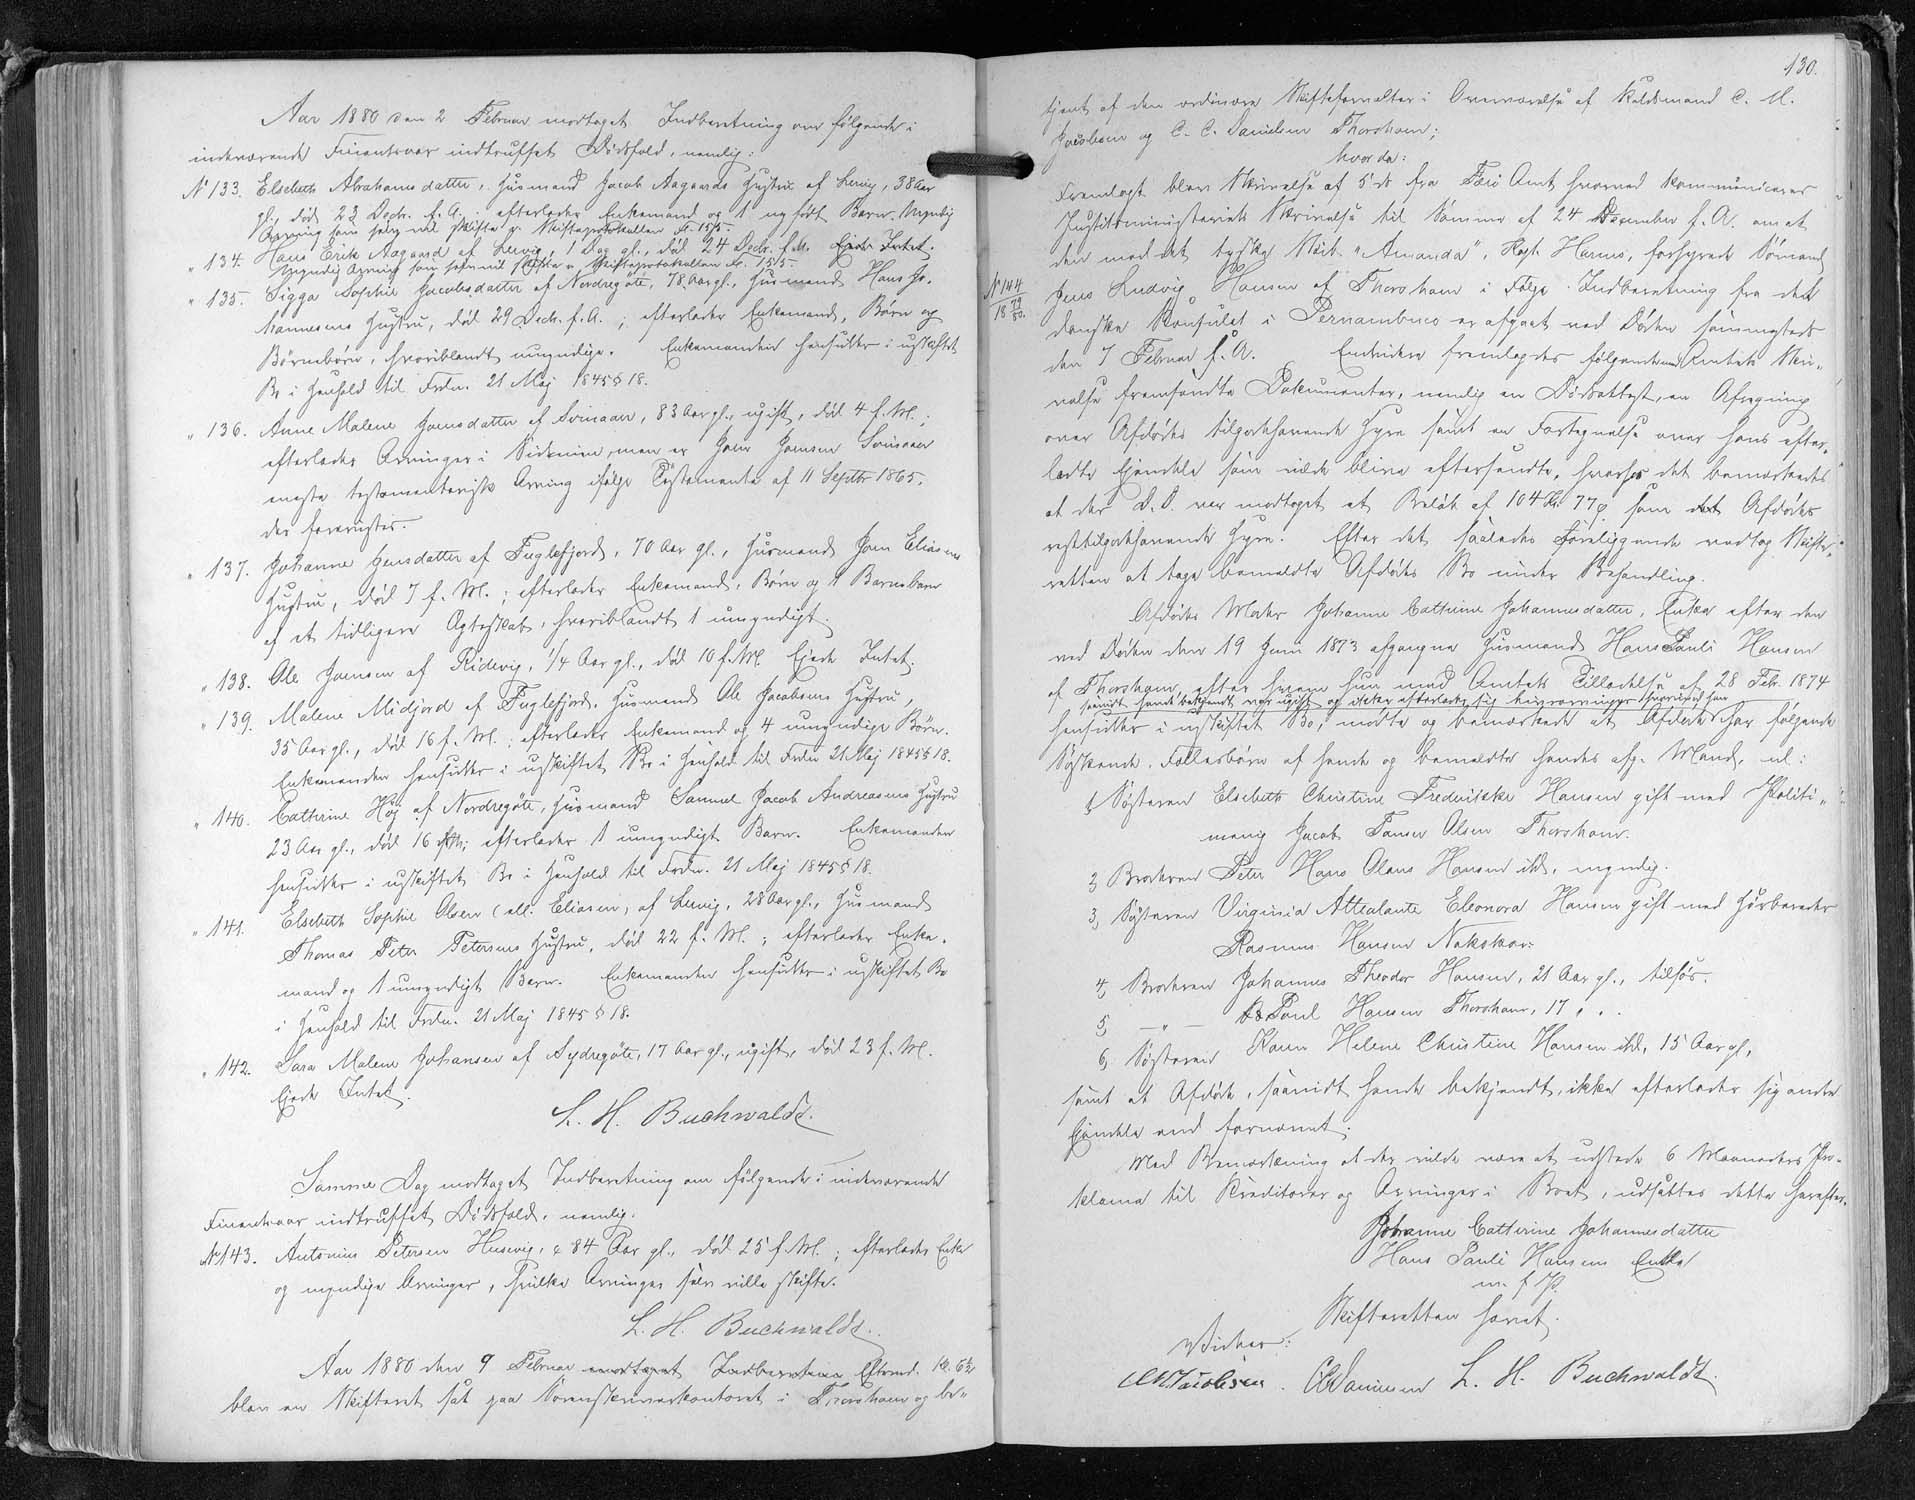 Aar 1880 den 2 Februar modtaget Indberetning om følgende i
indeværende Finantsaar indtruffet Dødsfald, nemlig:
N 133. Elsebeth Abrahamsdatter, Husmand Jacob Aagaards Hustru af Lervig, 38 Aar
gl., død 23 Decbr. f. A. efterlader Enkemand og 1 nyfødt Barn. Myndig
Arving som selv vil skifte v. Skifteprotokollen fl. 155.
" 134. Hans Erik Aagaard af Lervig, 1 Dag gl., død 24 Decbr. f. A. Ejede Intet.
Myndig Arving som selv vil skifte v. Skifteprotokollen fl. 155.
" 135. Sigga Sophie Jacobsdatter af Nordregøte, 78 Aar gl., Husmand Hans Jo-
hannesens Hustru, død 29 Decbr. f. A.; efterlader Enkemand, Børn og
Børnebørn, hvoriblandt umyndige. Enkemanden hensidder i uskiftet
Bo i Henhold til Frdn. 21 Maj 1845 § 18.
" 136. Anne Malene Joensdatter af Svinaar, 83 Aar gl., ugift, død 4 f. M.;
efterlader Arvinger i Sidelinien, men er Joen Joensen Svinaar
eneste testamentarisk Arving ifølge Testamente af 11 Septbr 1865.
der foreviistes.
" 137. Johanne Jensdatter af Fuglefjord, 70 Aar gl., Husmand Joen Eliasens
Hustru, død 7 f. M.; efterlader Enkemand, Børn og 1 Barnebarn
af et tidligere Ægteskab, hvoriblandt 1 umyndigt.
" 138. Ole Joensen af Ridevig, 1/4 Aar gl., død 10 f. M. Ejede Intet.
" 139. Malene Midjord af Fuglefjord, Husmand Ole Jacobsens Hustru,
35 Aar gl., død 16 f. M.; efterlader Enkemand og 4 umyndige Børn.
Enkemanden hensidder i uskiftet Bo i Henhold til Frdn 21 Maj 1845 § 18.
" 140. Cathrine Høj af Nordregøte, Husmand Samuel Jacob Andreasens Hustru
23 Aar gl., død 16 f. M.; efterlader 1 umyndigt Barn. Enkemanden
hensidder i uskiftet Bo i Henhold til Frdn. 21 Maj 1845 § 18.
" 141. Elsebeth Sophie Olsen (ell. Eliasen, af Lervig, 28 Aar gl., Husmand
Thomas Peter Petersens Hustru, død 22 f. M.; efterlader Enke-
mand og 1 umyndigt Barn. Enkemanden hensidder i uskiftet Bo
i Henhold til Frdn. 21 Maj 1845 § 18.
" 142. Sara Malene Johansen af Sydregøte, 17 Aar gl., ugift, død 23 f. M.
Ejede Intet.
L. H. Buchwaldt.
Samme Dag modtaget Indberetning om følgende i indeværende
Finantsaar indtruffet Dødsfald, nemlig:
N 143. Antonius Petersen Husevig, 84 Aar gl., død 25 f. M.; efterlader Enke
og myndige Arvinger, hvilke Arvinger selv ville skifte.
L. H. Buchwaldt.
Aar 1880 den 9 Februar modtaget Indberetning Eftermd. Kl. 6½
blev en Skifteret sat paa Sorenskriverkontoret i Thorshavn og be-
130.
tjent af den ordinære Skifteforvalter i Overværelse af Retsmænd C. M.
Jacobsen og C. C. Danielsen Thorshavn;
hvorda:
Fremlagt blev Skrivelse af 5 ds fra Færø Amt hvorved kommuniceres
Justitsministeriets Skrivelse til samme af 24 December f. A. om at
den med det tyske Skib "Amanda", Kapt. Harms, forhyrede Sømand
N 144 1879/80. Jens Ludvig Hansen af Thorshavn i Følge Indberetning fra det
danske Konsulat i Pernambuco er afgaaet ved Døden sammesteds
den 7 Februar f. A. Endvidere fremlagdes følgende med Amtets Skri-
velse fremsendte Dokumenter, nemlig en Dødsattest, en Afregning
over Afdødes tilgodehavende Hyre samt en Fortegnelse over hans efter-
ladte Ejendele som vilde blive eftersendte, hvorhos det bemærkedes
at der D. D. var modtaget et Beløb af 104 Kr. 77 Ø som det Afdødes
resttilgodehavende Hyre. Efter det saaledes Foreliggende vedtog Skifte-
retten at tage bemeldte Afdødes Bo under Behandling.
Afdødes Moder Johanne Cathrine Johannesdatter, Enke efter den
ved Døden den 19 Juni 1873 afgangne Husmand Hans Pauli Hansen
af Thorshavn, efter hvem hun med Amtets Tilladelse af 28 Febr. 1874
saavidt hende bekjendt var ugift og ikke efterlader sig Livsarvinger
hensidder i uskiftet Bo, mødte og bemærkede at Afdøde har følgende
Søskende, Fællesbørn af hende og bemeldte hendes afg. Mand, nl:
1, Søsteren Elsebeth Christine Frederikke Hansen gift med Politi-
menig Jacob Tausen Olsen Thorshavn.
2, Broderen Peter Hans Olaus Hansen ibd, myndig.
3, Søsteren Virginia Attealante Eleonora Hansen gift med Hørbereder
Rasmus Hansen Nakskov.
4, Broderen Johannes Theodor Hansen, 21 Aar gl., tilsøs.
5, — " — Poul Hansen Thorshavn, 17 " "
6, Søsteren Karen Helene Christine Hansen ibd, 15 Aar gl,
samt at Afdøde, saavidt hende bekjendt, ikke efterlader sig andre
Ejendele end fornævnt.
Med Bemærkning at der vilde være at udstede 6 Maaneders Pro-
klama til Kreditorer og Arvinger i Boet, udsattes dette herefter.
Johanne Cathrine Johannesdatter
Hans Pauli Hansens Enke
m. f. P.
Skifteretten hævet.
Vidner:
CM Jacobsen. CC Danielsen L. H. Buchwaldt.